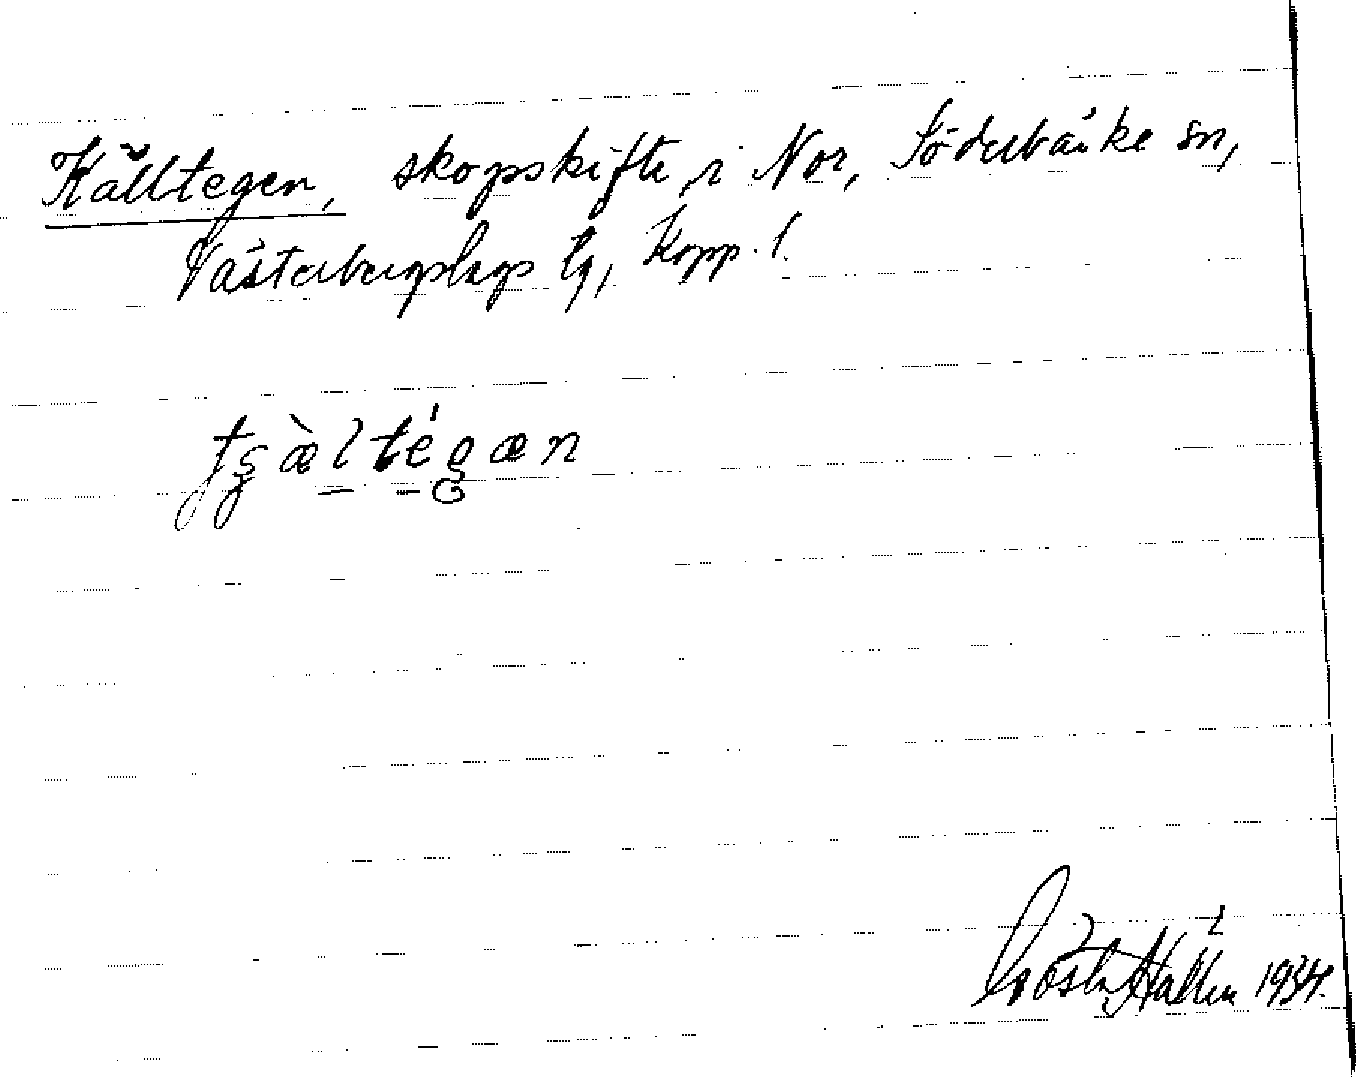 Källtegen, skogsskifte i Nor, Söderbärke sn,
Västerbergslags tg, Kopp. l.
tʂæ̀ltégæn
Gösta Hallén 1934.